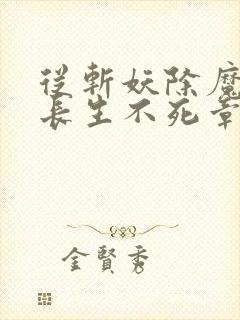 從斬妖除魔
長生不死章
金賢秀